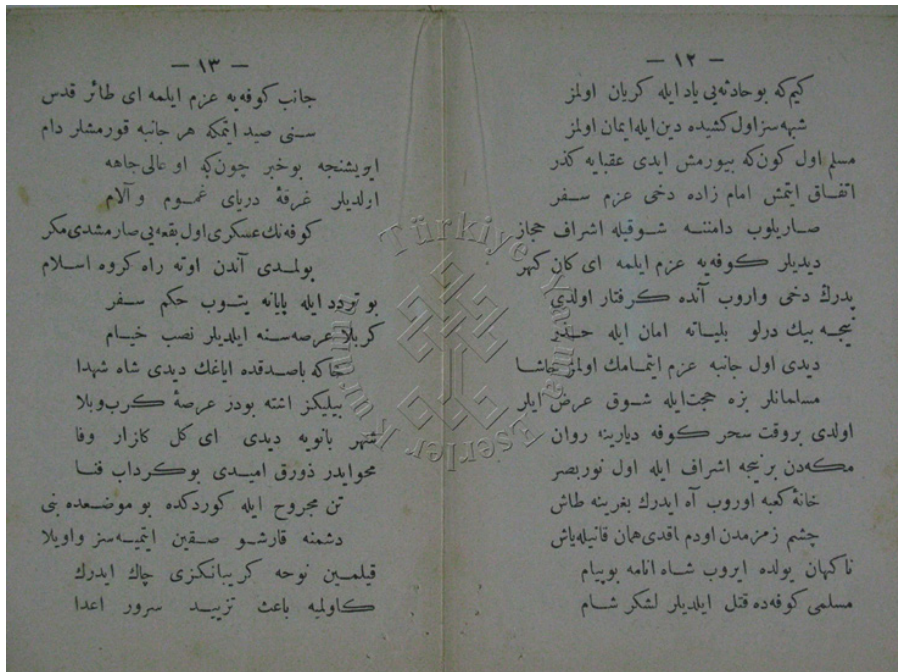 — ١٢ —
كيم كه بو حادثه‌يى ياد ايله كريان اولمز
شبهه سز اول كشيده دين ايله ايمان اولمز
مسلم اول كون كه بيورمش ايدى عقبايه كذر
اتفاق ايتمش امام زاده دخى عزم سفر
صاريلوب دامننه شوقيله اشراف حجاز
ديديلر كوفه‌يه عزم ايلمه اى كان كهر
پدرك دخى واروب آنده كرفتار اولدى
نيجه بيك درلو بلياته امان ايله حذر
ديدى اول جانبه عزم ايتمامك اولمز حاشا
مسلمانلر بزه حجت ايله شوق عرض ايلر
اولدى بروقت سحر كوفه ديارينه روان
مكه‌دن برنيجه اشراف ايله اول نوربصر
خانهٔ كعبه اوروب آه ايدرك بغرينه طاش
چشم زمزمدن اودم اقدى همان قانيله ياش
ناكهان يولده ايروب شاه انامه بوپيام
مسلمى كوفه‌ده قتل ايلديلر لشكر شام
— ١٣ —
جانب كوفه‌يه عزم ايلمه اى طائر قدس
سنى صيد ايتمكه هر جانبه قورمشلر دام
ايريشنجه بوخبر چونكه او عالى جاهه
اولديلر غرقهٔ درياى غموم و آلام
كوفه‌نك عسكرى اول بقعه‌يى صارمشدى مكر
بولمدى آندن اوته راه كروه اسلام
بو تردد ايله پايانه يتوب حكم سفر
كربلا عرصه‌سنه ايلديلر نصب خيام
خاكه باصدقده اياغك ديدى شاه شهدا
بيليكز اشته بودر عرصهٔ كرب وبلا
شهر بانويه ديدى اى كل كلزار وفا
محوايدر ذورق اميدى بو كرداب فنا
تن مجروح ايله كوردكده بو موضعده بنى
دشمنه قارشو صقين ايتميه‌سز واويلا
قيلمسين نوحه كريبانكزى چاك ايدرك
كاولميه باعث تزييد سرور اعدا
Türkiye Yazma Eserler Kurumu